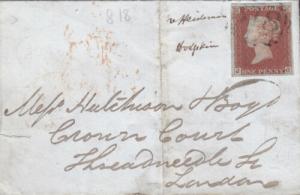 818
Hodgkin
POSTAGE
ONE PENNY
Messrs Hutchison & Boyd
Crown Court
Threadneedle St
London